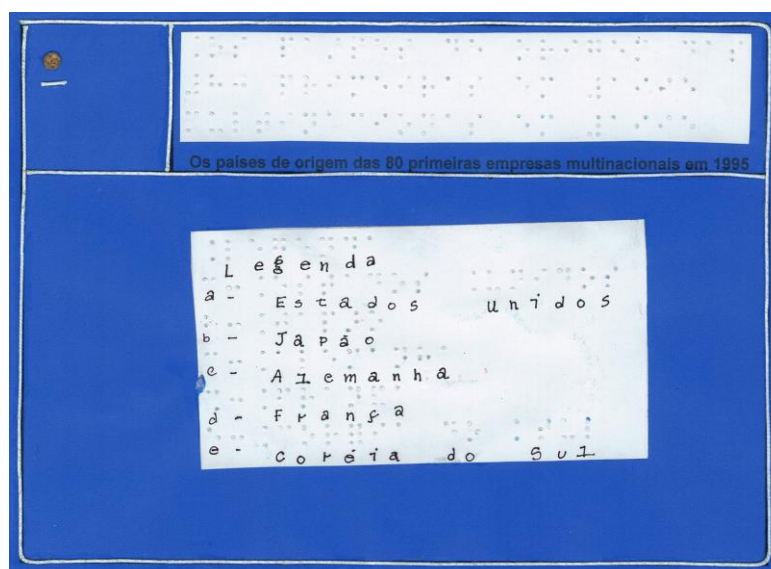 Os países de origem das 80 primeiras empresas multinacionais em 1995
Legenda
a - Estados unidos
b - Japão
c - Alemanha
d - França
e - Coréia do Sul